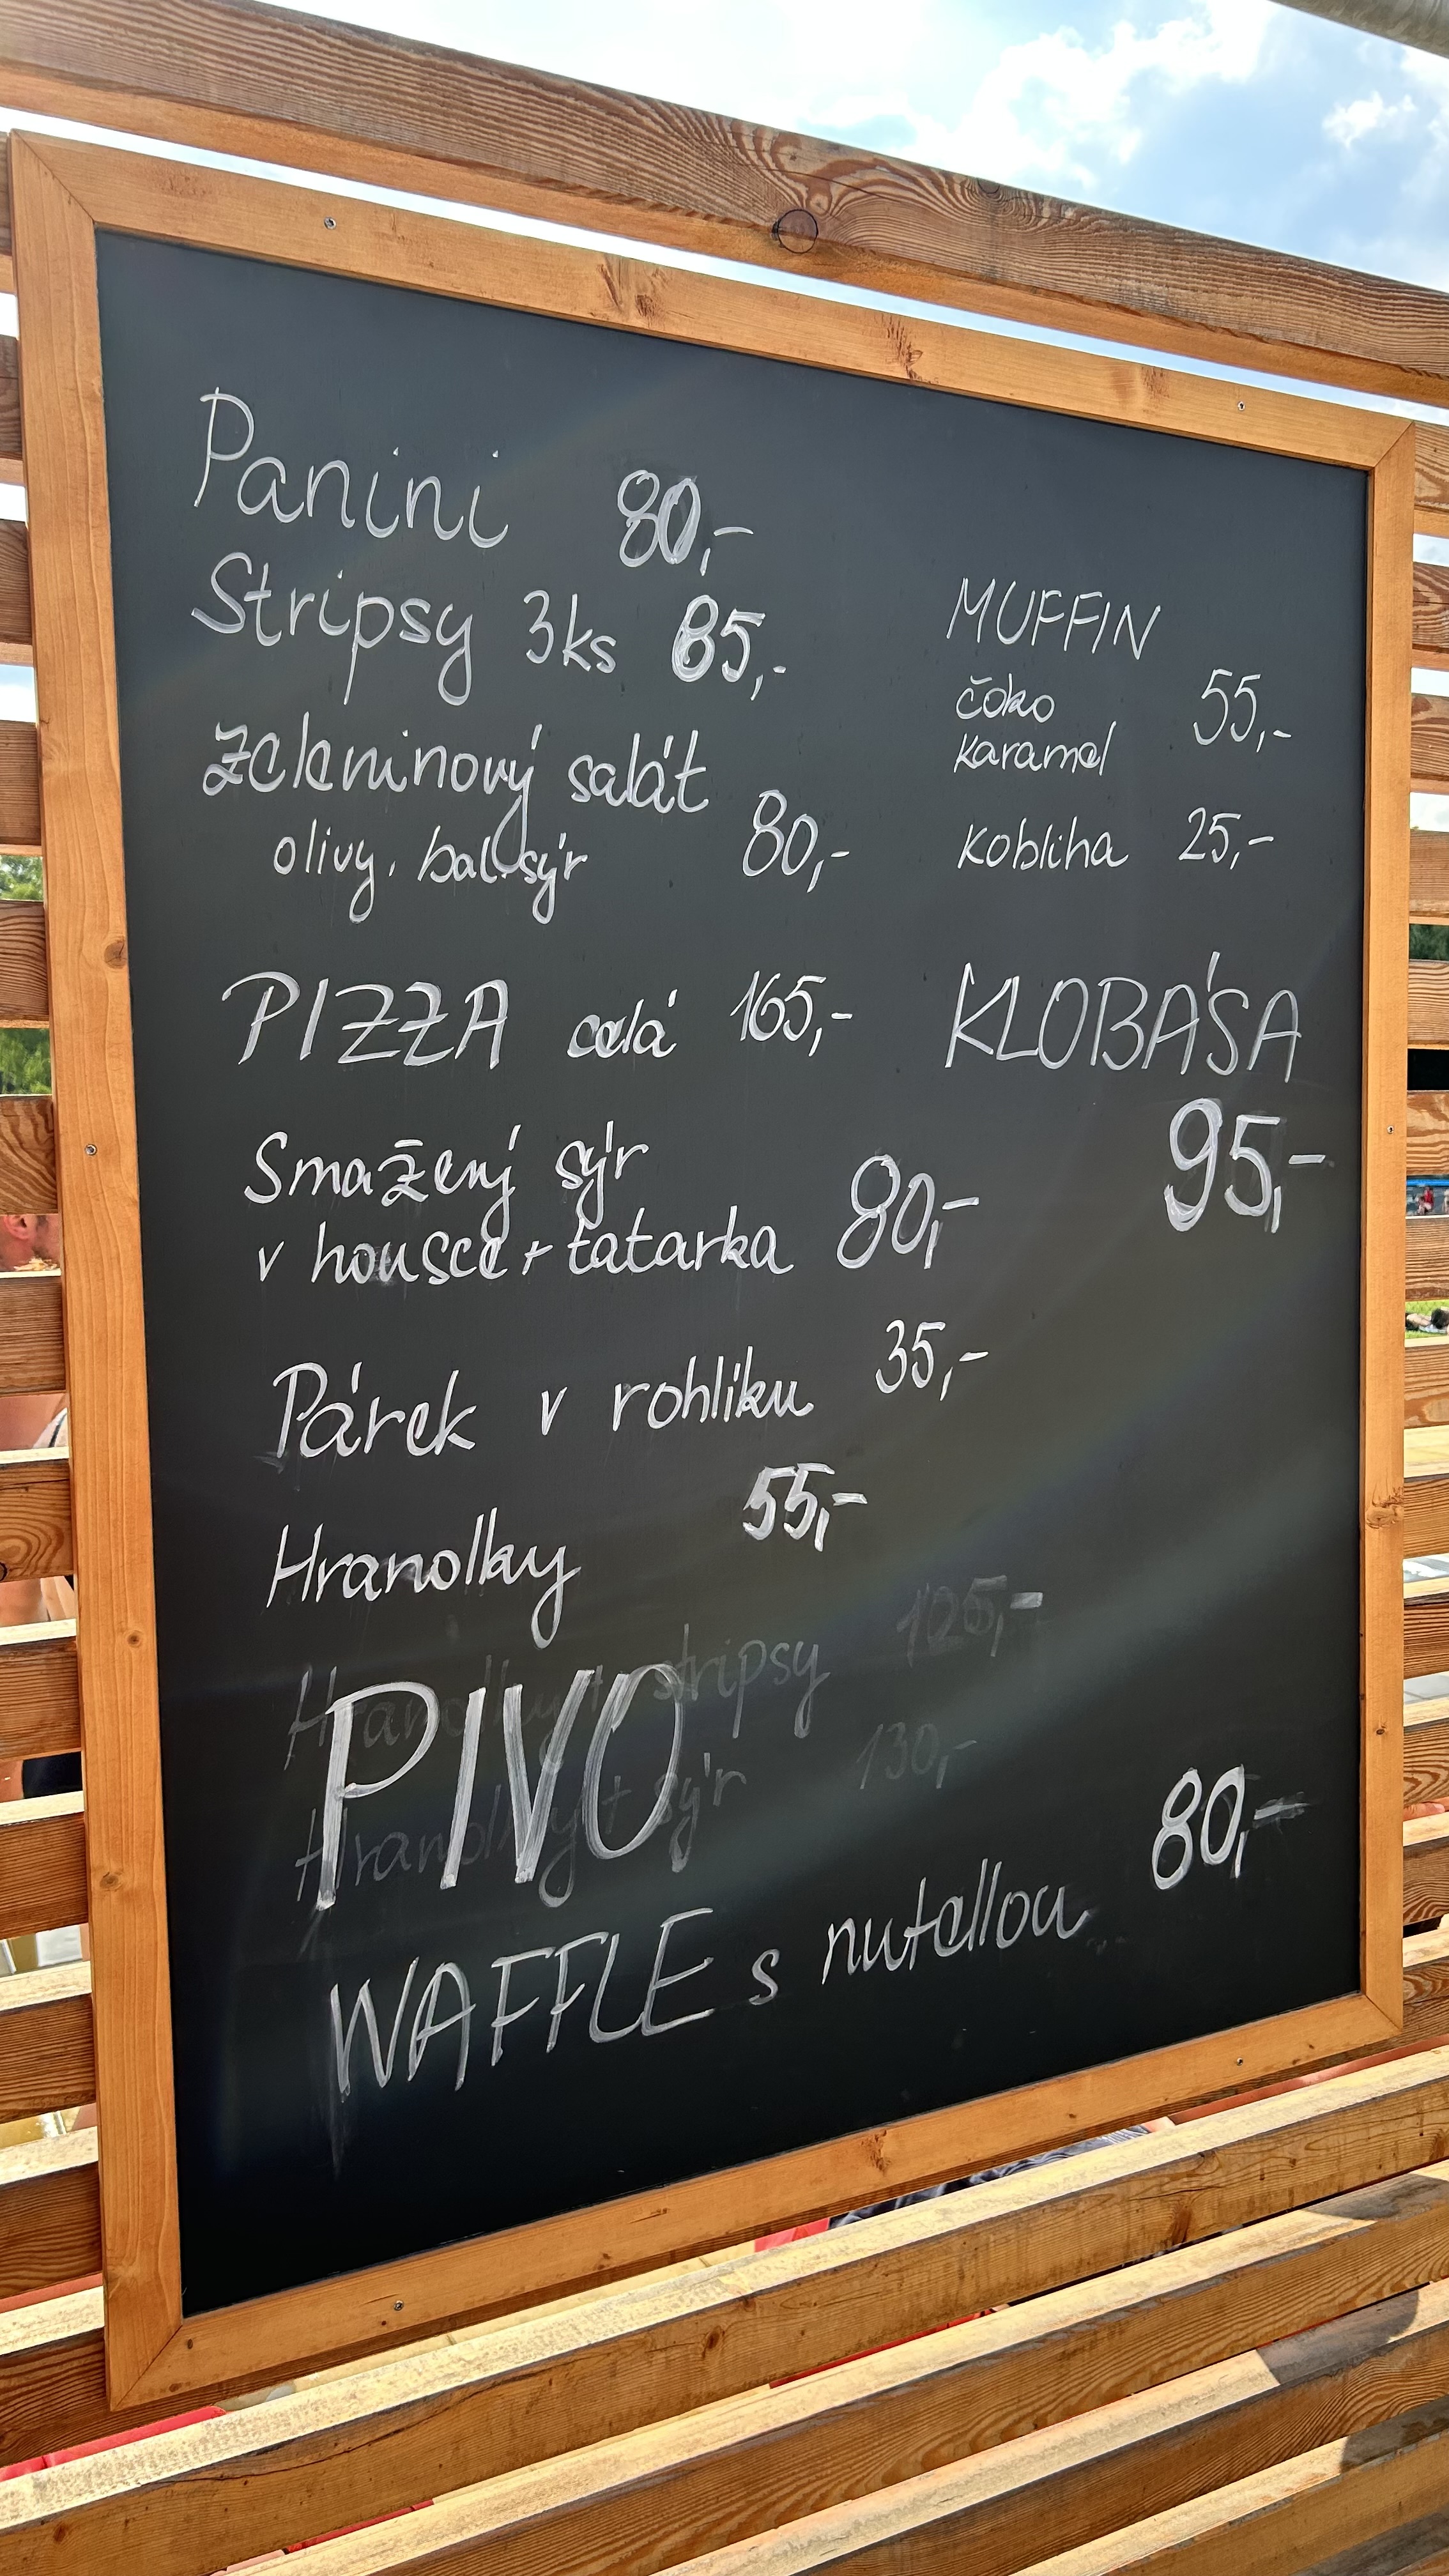 Panini 80,-
Stripsy 3ks 85,-
Zeleninový salát
olivy, bal. sýr 80,-
PIZZA celá 165,-
Smažený sýr
v housce + tatarka 80,-
Párek v rohlíku 35,-
Hranolky 55,-
Hranolky + stripsy 125,-
PIVO
Hranolky + sýr 130,-
WAFFLE s nutellou 80,-
MUFFIN
čoko
karamel 55,-
Kobliha 25,-
KLOBÁSA
95,-